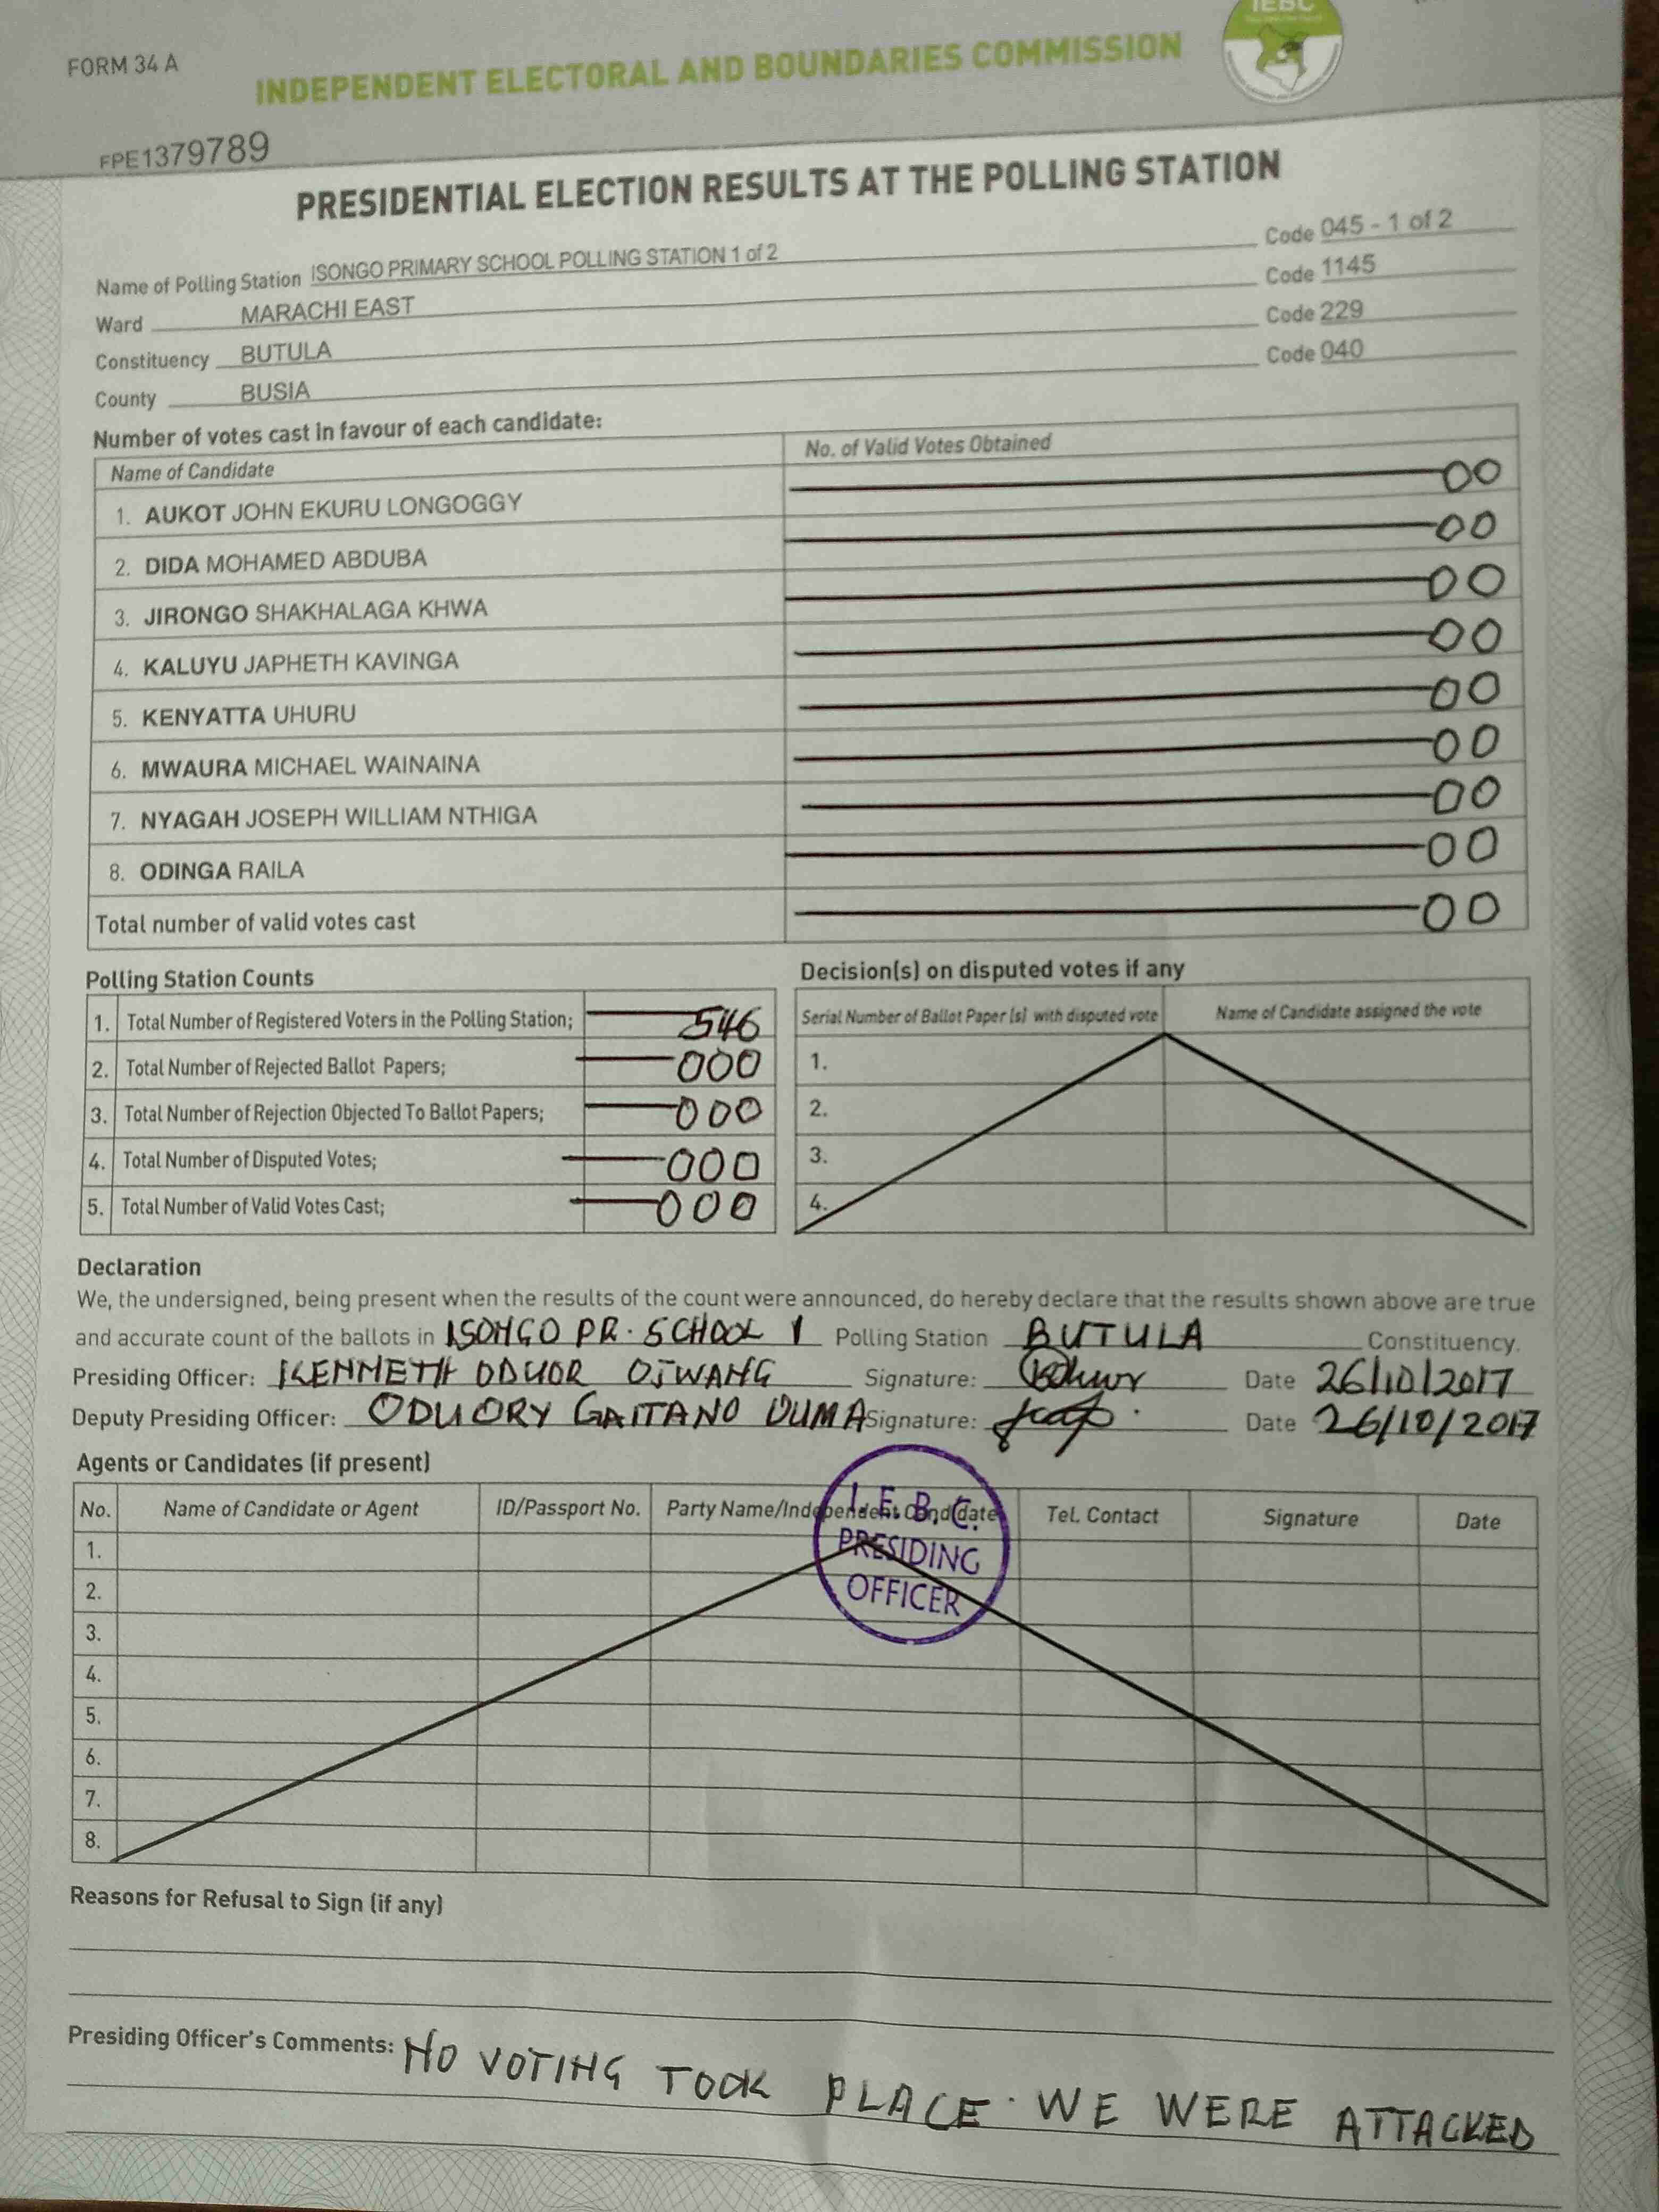 IEBC
FORM 34 A
INDEPENDENT ELECTORAL AND BOUNDARIES COMMISSION
FPE1379789
PRESIDENTIAL ELECTION RESULTS AT THE POLLING STATION
Name of Polling Station ISONGO PRIMARY SCHOOL POLLING STATION 1 of 2 Code 045 - 1 of 2
Ward MARACHI EAST Code 1145
Constituency BUTULA Code 229
County BUSIA Code 040
Number of votes cast in favour of each candidate:
Name of Candidate No. of Valid Votes Obtained
1. AUKOT JOHN EKURU LONGOGGY 00
2. DIDA MOHAMED ABDUBA 00
3. JIRONGO SHAKHALAGA KHWA 00
4. KALUYU JAPHETH KAVINGA 00
5. KENYATTA UHURU 00
6. MWAURA MICHAEL WAINAINA 00
7. NYAGAH JOSEPH WILLIAM NTHIGA 00
8. ODINGA RAILA 00
Total number of valid votes cast 00
Polling Station Counts
1. Total Number of Registered Voters in the Polling Station; 546
2. Total Number of Rejected Ballot Papers; 000
3. Total Number of Rejection Objected To Ballot Papers; 000
4. Total Number of Disputed Votes; 000
5. Total Number of Valid Votes Cast; 000
Decision(s) on disputed votes if any
Serial Number of Ballot Paper (s) with disputed vote Name of Candidate assigned the vote
1.
2.
3.
4.
Declaration
We, the undersigned, being present when the results of the count were announced, do hereby declare that the results shown above are true
and accurate count of the ballots in ISONGO PR. SCHOOL 1 Polling Station BUTULA Constituency.
Presiding Officer: KENNETH ODUOR OJWANG Signature: Date 26/10/2017
Deputy Presiding Officer: ODUORY GAITANO OUMA Signature: Date 26/10/2017
Agents or Candidates (if present)
No. Name of Candidate or Agent ID/Passport No. Party Name/Independent Candidate Tel. Contact Signature Date
I.E.B.C.
PRESIDING
OFFICER
1.
2.
3.
4.
5.
6.
7.
8.
Reasons for Refusal to Sign (if any)
Presiding Officer's Comments: NO VOTING TOOK PLACE. WE WERE ATTACKED